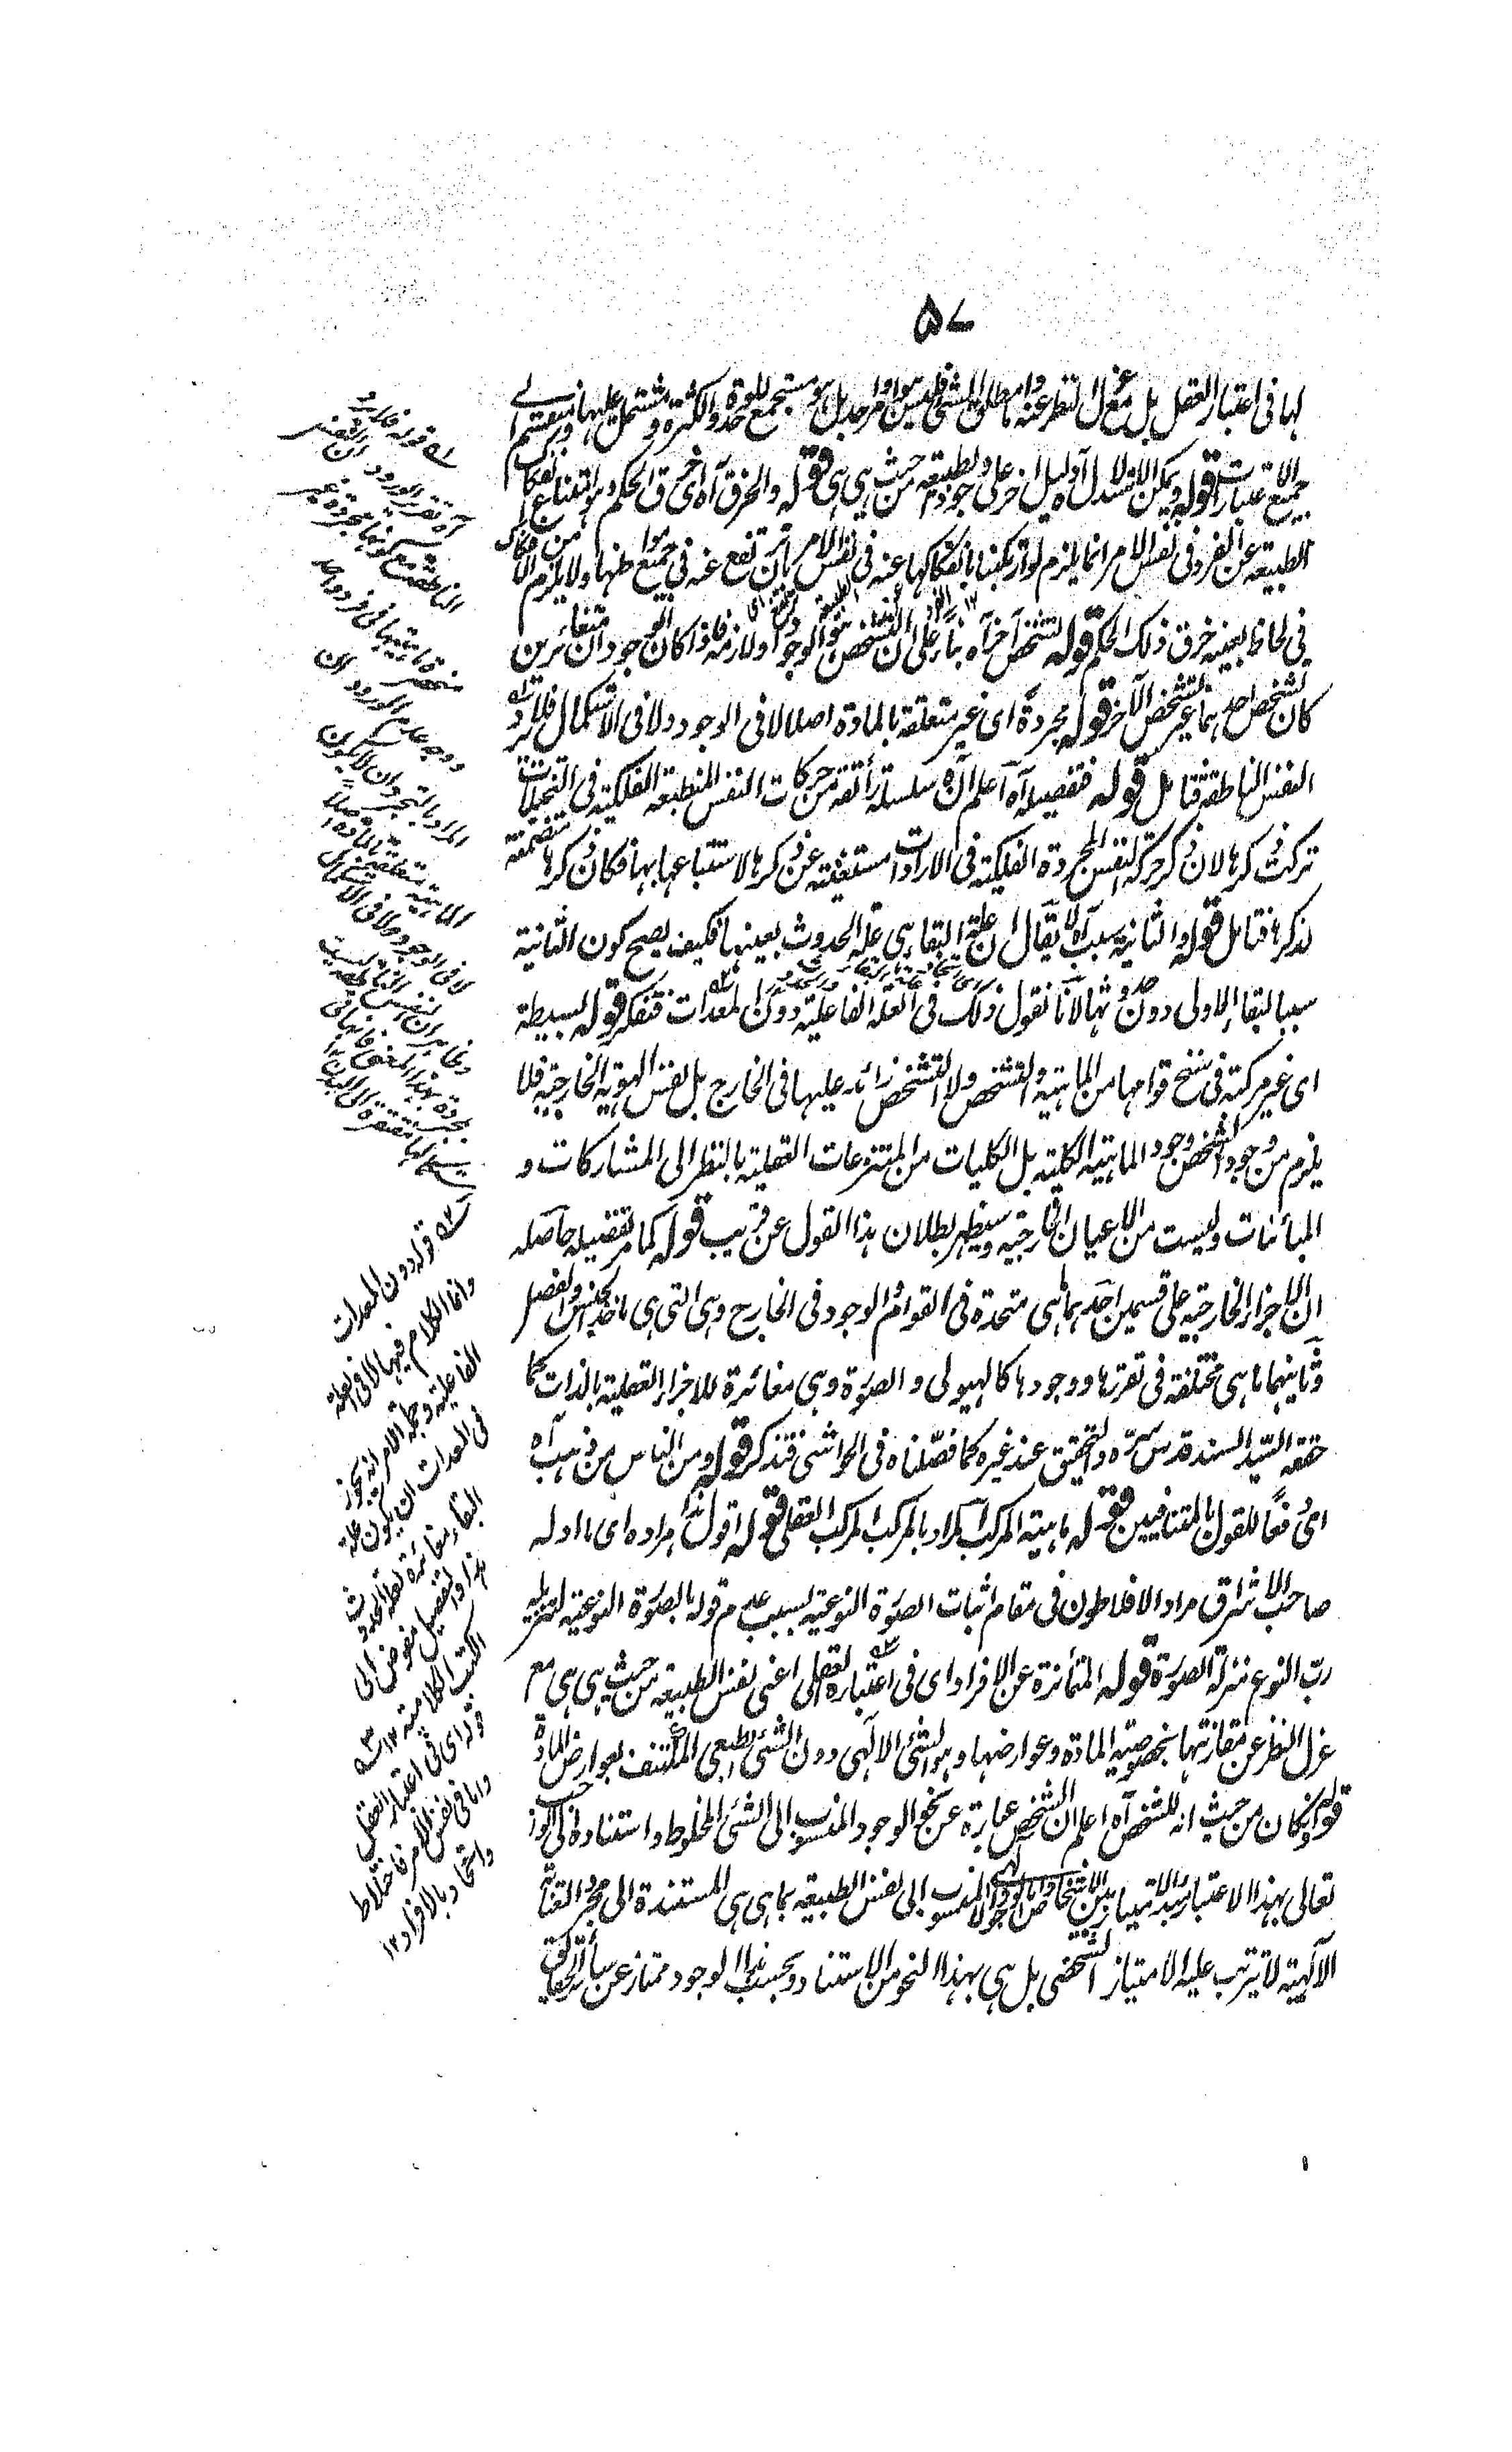 ۵۷
لها فی اعتبار العقل بل مع عزل النظر عنه واما مطلق الشئ فليس هو امرا واحدا بل هو مستجمع للوحدة والكثرة ومشتمل عليها ومنقسم الى
جميع الاعتبارات قوله ويمكن الاستدلال آه دليل آخر على وجود الطبيعة من حيث هی هی قوله والخرق آه ای خرق الحكم وهو امتناع انفكاك
الطبيعة عن الفرد فی نفس الامر انما يلزم لو ارتكبنا بانفكاكها عنه فی نفس الامر بان ترتفع عنه فی جميع مواطنها ولا يلزم من الانفكاك
فی لحاظ بعينه خرق ذلك الحكم قوله تشخص آخر آه بناء على ان التشخص نحو الوجود او لازمه فاذا كان الوجودان متغائرين
كان تشخص احدهما غير تشخص الآخر قوله مجردة ای غير متعلقة بالمادة اصلا لا فی الوجود ولا فی الاستكمال فلا يرد
النفس الناطقة فتامل قوله فتفصيله آه اعلم ان سلسلة رائقة من حركات النفس المنطبعة الفلكية فی التخيلات
تركت ذكرها لان ذكر حركة النفس المجردة الفلكية فی الارادات مستغنية عن ذكرها لاستتباعها بها فكان ذكرها متضمنة
لذكرها فتامل قوله والثانية سبب آه لا يقال ان علة البقا هی علة الحدوث بعينها فكيف يصح كون الثانية
سببا لبقاء الاولى دون حدوثها لانا نقول ذلك فی العلة الفاعلية دون المعدات فتفكر قوله بسيطة
ای غير مركبة فی سنخ قوامها من الماهية والتشخص ولا التشخص زائد عليها فی الخارج بل نفس الهوية الخارجية فلا
يلزم من وجود الشخص وجود الماهية الكلية بل الكليات من المنتزعات العقلية بالنظر الى المشاركات و
المبائنات وليست من الاعيان الخارجية وسيظهر بطلان هذا القول عن قريب قوله كما مر تفصيله حاصله
ان الاجزاء الخارجية على قسمين احدهما ما هی متحدة فی القوام والوجود فی الخارج وهی التی هی ماخذ الجنس والفصل
وثانيهما ما هی مختلفة فی تقررها ووجودها كالهيولى والصورة وهی مغائرة للاجزاء العقلية بالذات كما
حققه السيد السند قدس سره والتحقيق عند غيره كما فصلناه فی الحواشی فتذكر قوله ومن الناس من ذهب آه
ای دفعا للقول بالمتنافيين قوله ماهية المركب آه المراد بالمركب المركب العقلی قوله اقول هذا مراده ای ما اوله
صاحب الاشراق مراد الافلاطون فی مقام اثبات الصورة النوعية بسبب عدم قوله بالصورة النوعية لتنزيله
رب النوع منزلة الصورة قوله المتمائزة عن الافراد ای فی اعتبار العقل اعنی نفس الطبيعة من حيث هی هی مع
عزل النظر عن مقارنتها بخصوصية المادة وعوارضها وهو الشئ الالهی دون الشئ الطبعی المكتنف بعوارض المادة
قوله وان كان من حيث انه للشخص آه اعلم ان الشخص عبارة عن نحو الوجود المنسوب الى الشئ المخلوط واستناده الى الواجب
تعالى بهذا الاعتبار يفيد الامتياز بين الاشخاص واما الوجود المنسوب الى نفس الطبيعة بما هی هی المستندة الى مجرد العناية
الآلهية لا يترتب عليه الامتياز الشخصی بل هی بهذا النحو من الاستناد وبحسب هذا الوجود ممتاز عن سائر الحقائق
قوله فلا يرد
آه تقرير الورود ان النفس
الناطقة مع كونها مجردة غير
منحصرة ماهيتها فی فرد واحد
ووجه عدم الورود ان
المراد بالتجرد ان لا يكون
الماهية متعلقة بالمادة اصلا
لا فی الوجود ولا فی الاستكمال
وظاهر ان النفس الناطقة ليست
مجردة بهذا المعنى فانها فی
مفتقرة الى البدن ۱۲
قوله دون المعدات
وانما الكلام فيها لا فی العلة
الفاعلية وجملة الامر انه يجوز
فی المعدات ان يكون علة
البقاء مغائرة لعلة الحدوث
هذا والتفصيل مفوض الى
الكتب الكلامية ۱۲
قوله ای فی اعتبار العقل
واما فی نفس الامر فاختلاط
واتحاد بالافراد ۱۲